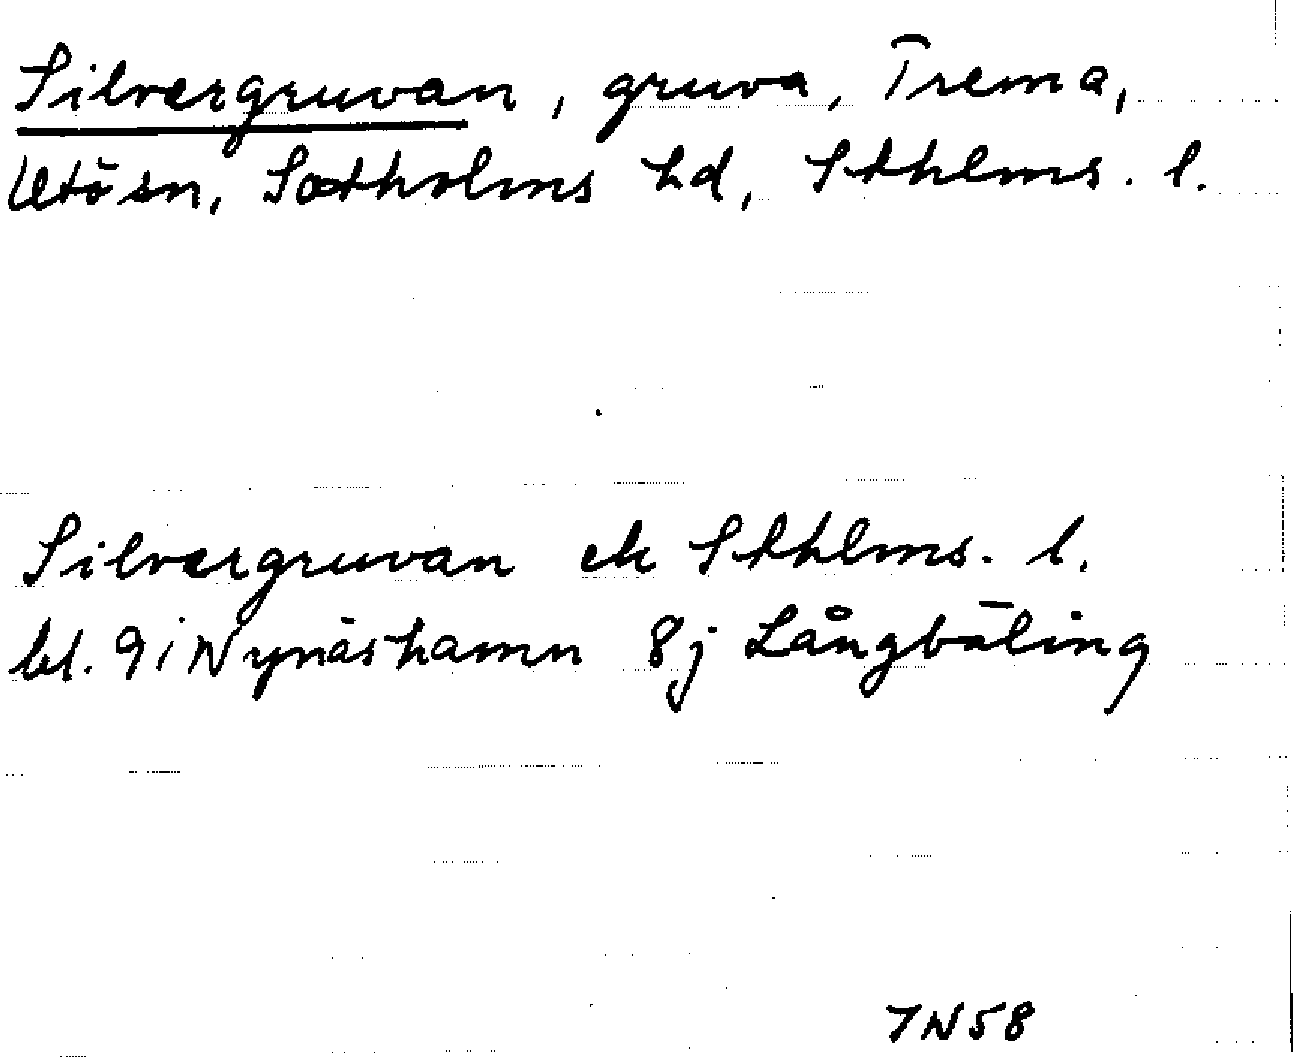 Silvergruvan, gruva, Trema,
Utö sn, Sotholms hd, Sthlms. l.
Silvergruvan ek Sthlms. l.
bl. 9i Nynäshamn 8j Långbäling
7N58